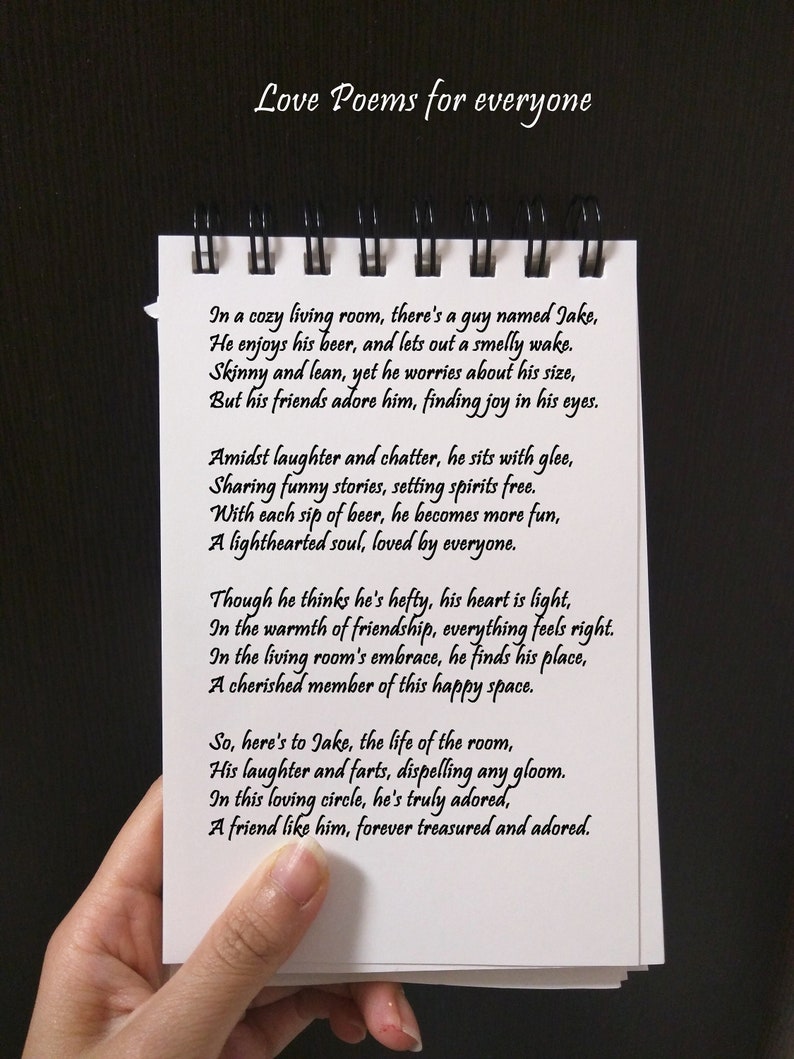 Love Poems for everyone
In a cozy living room, there's a guy named Jake,
He enjoys his beer, and lets out a smelly wake.
Skinny and lean, yet he worries about his size,
But his friends adore him, finding joy in his eyes.
Amidst laughter and chatter, he sits with glee,
Sharing funny stories, setting spirits free.
With each sip of beer, he becomes more fun,
A lighthearted soul, loved by everyone.
Though he thinks he's hefty, his heart is light,
In the warmth of friendship, everything feels right.
In the living room's embrace, he finds his place,
A cherished member of this happy space.
So, here's to Jake, the life of the room,
His laughter and farts, dispelling any gloom.
In this loving circle, he's truly adored,
A friend like him, forever treasured and adored.